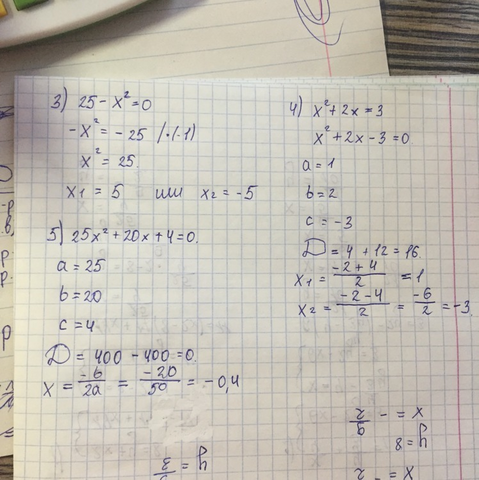 3) 25 - x² = 0
-x² = -25 /·(-1)
x² = 25.
x1 = 5 или x2 = -5
5) 25x² + 20x + 4 = 0.
a = 25
b = 20
c = 4.
D = 400 - 400 = 0.
x = -b/2a = -20/50 = -0,4
4) x² + 2x = 3
x² + 2x - 3 = 0.
a = 1
b = 2
c = -3
D = 4 + 12 = 16.
x1 = -2+4/2 = 1
x2 = -2-4/2 = -6/2 = -3.